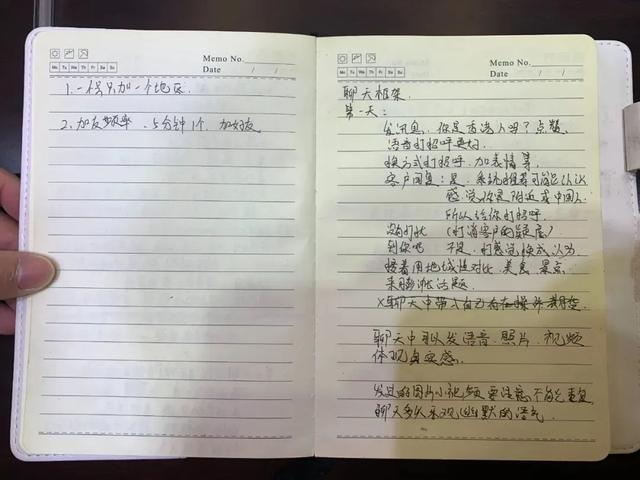 Memo No.
Mo Tu We Th Fr Sa Su
Date / /
1. 一号只加一个地区.
2. 加友频率、5分钟1个, 加好友
Memo No.
Mo Tu We Th Fr Sa Su
Date / /
聊天框架.
第一天:
发讯息, 你是香港人吗? 点赞.
语音打招呼更好.
换方式打招呼. 加表情等.
客户回复: 是. 系统推荐可能认识
感觉你是附近或中国人.
所以给你打招呼.
(打消客户的疑虑)
到你吧 不是, 打感觉换成以为
接着用地域性对比, 美食, 景点.
来话题
X聊天中带入自己
聊天中可以发语音. 照片, 视频
体现真实感.
发过的图片小视频要注意, 不能重复
聊天多以乐观, 幽默的语气.